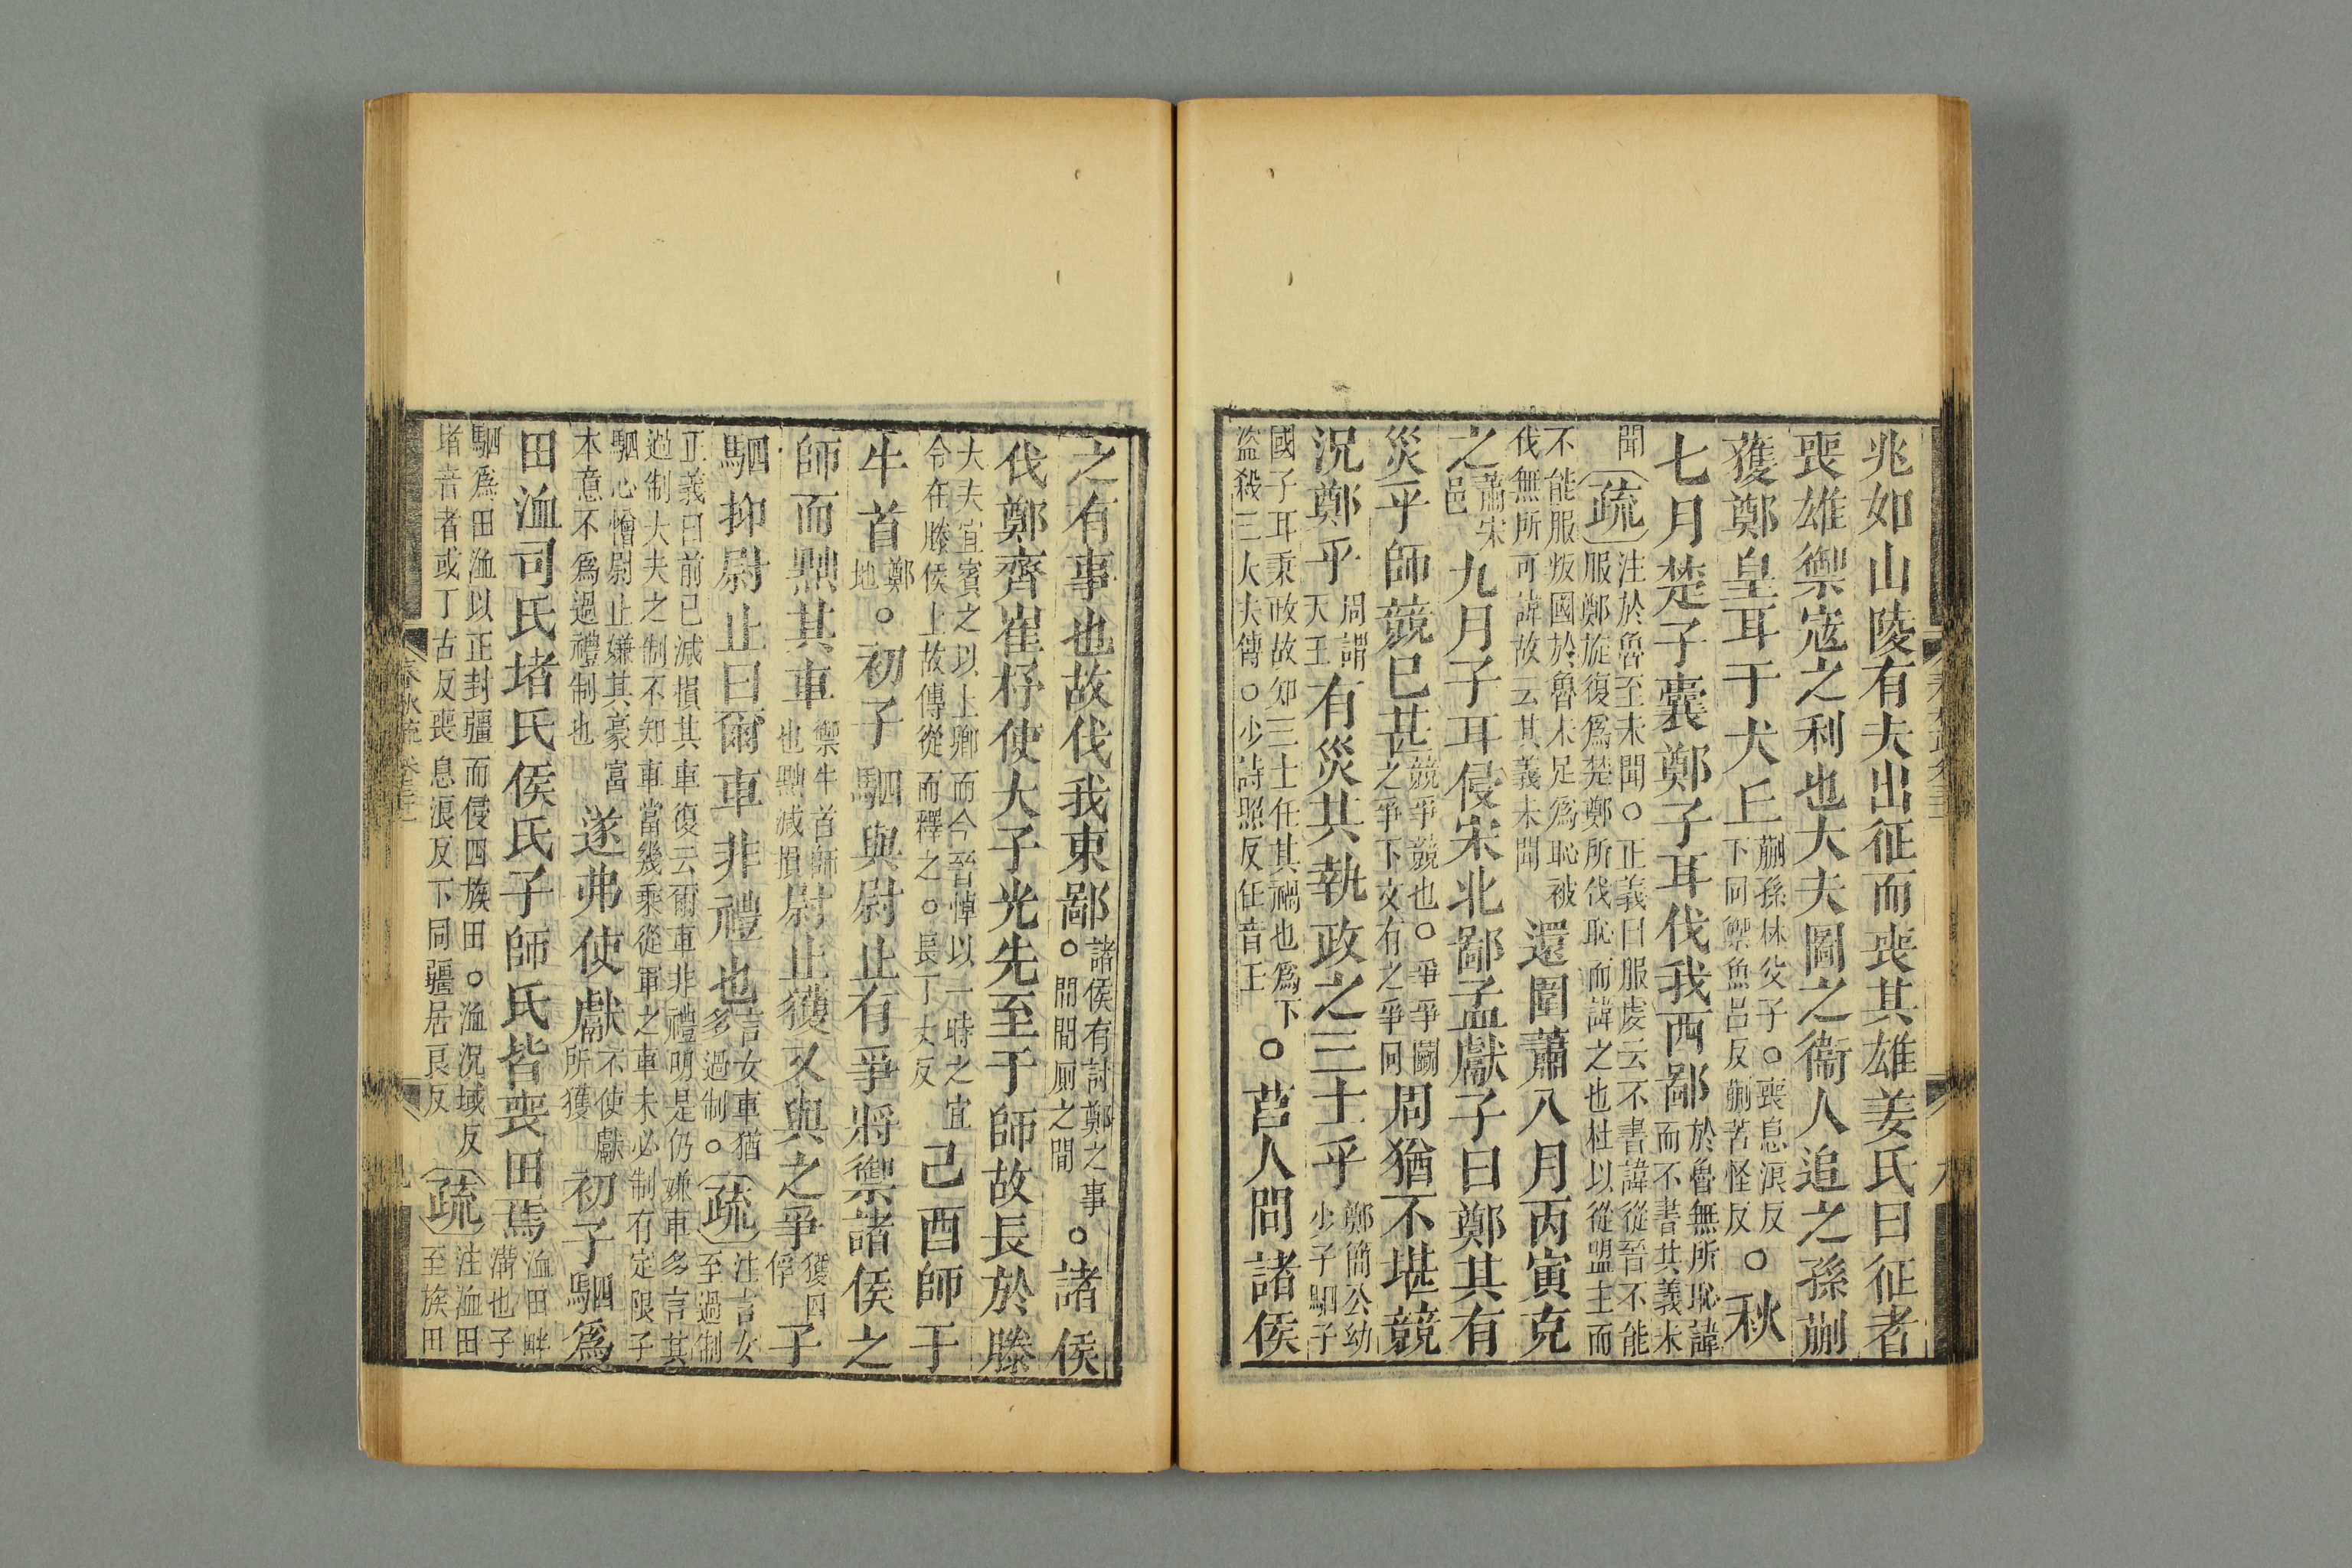 兆如山陵有夫出征而喪其雄姜氏曰征者
喪雄禦寇之利也大夫圖之衞人追之孫蒯
獲鄭皇耳于犬丘蒯孫林父子○喪息浪反
下同禦魚呂反蒯苦怪反○秋
七月楚子囊鄭子耳伐我西鄙於魯無所恥諱
而不書其義未
聞疏注於魯至未聞○正義曰服虔云不書諱從晉不能
服鄭旋復爲楚鄭所伐恥而諱之也杜以從盟主而
不能服叛國於魯未足爲恥被
伐無所可諱故云其義未聞還圍蕭八月丙寅克
之蕭宋
邑九月子耳侵宋北鄙孟獻子曰鄭其有
災乎師競已甚競爭競也○爭爭鬬
之爭下文有之爭同周猶不堪競
況鄭乎周謂
天王有災其執政之三士乎鄭簡公幼
少子駟子
國子耳秉政故知三士任其禍也爲下
盜殺三大夫傳○少詩照反任音王○莒人間諸侯
之有事也故伐我東鄙諸侯有討鄭之事
○間間厠之間○諸侯
伐鄭齊崔杼使大子光先至于師故長於滕
大夫宜賓之以上卿而今晉悼以一時之宜
令在滕侯上故傳從而釋之○長丁丈反己酉師于
牛首鄭
地○初子駟與尉止有爭將禦諸侯之
師而黜其車禦牛首師
也黜減損尉止獲又與之爭獲囚
俘子
駟抑尉止曰爾車非禮也言女車猶
多過制○疏注言女
至過制
正義曰前已減損其車復云爾車非禮明是仍嫌車多言其
過制大夫之制不知車當幾乘從軍之車未必制有定限子
駟心憎尉止嫌其豪富
本意不爲過禮制也遂弗使獻不使獻
所獲初子駟爲
田洫司氏堵氏侯氏子師氏皆喪田焉洫田畔
溝也子
駟爲田洫以正封疆而侵四族田○洫況域反
堵音者或丁古反喪息浪反下同疆居良反疏注洫田
至族田